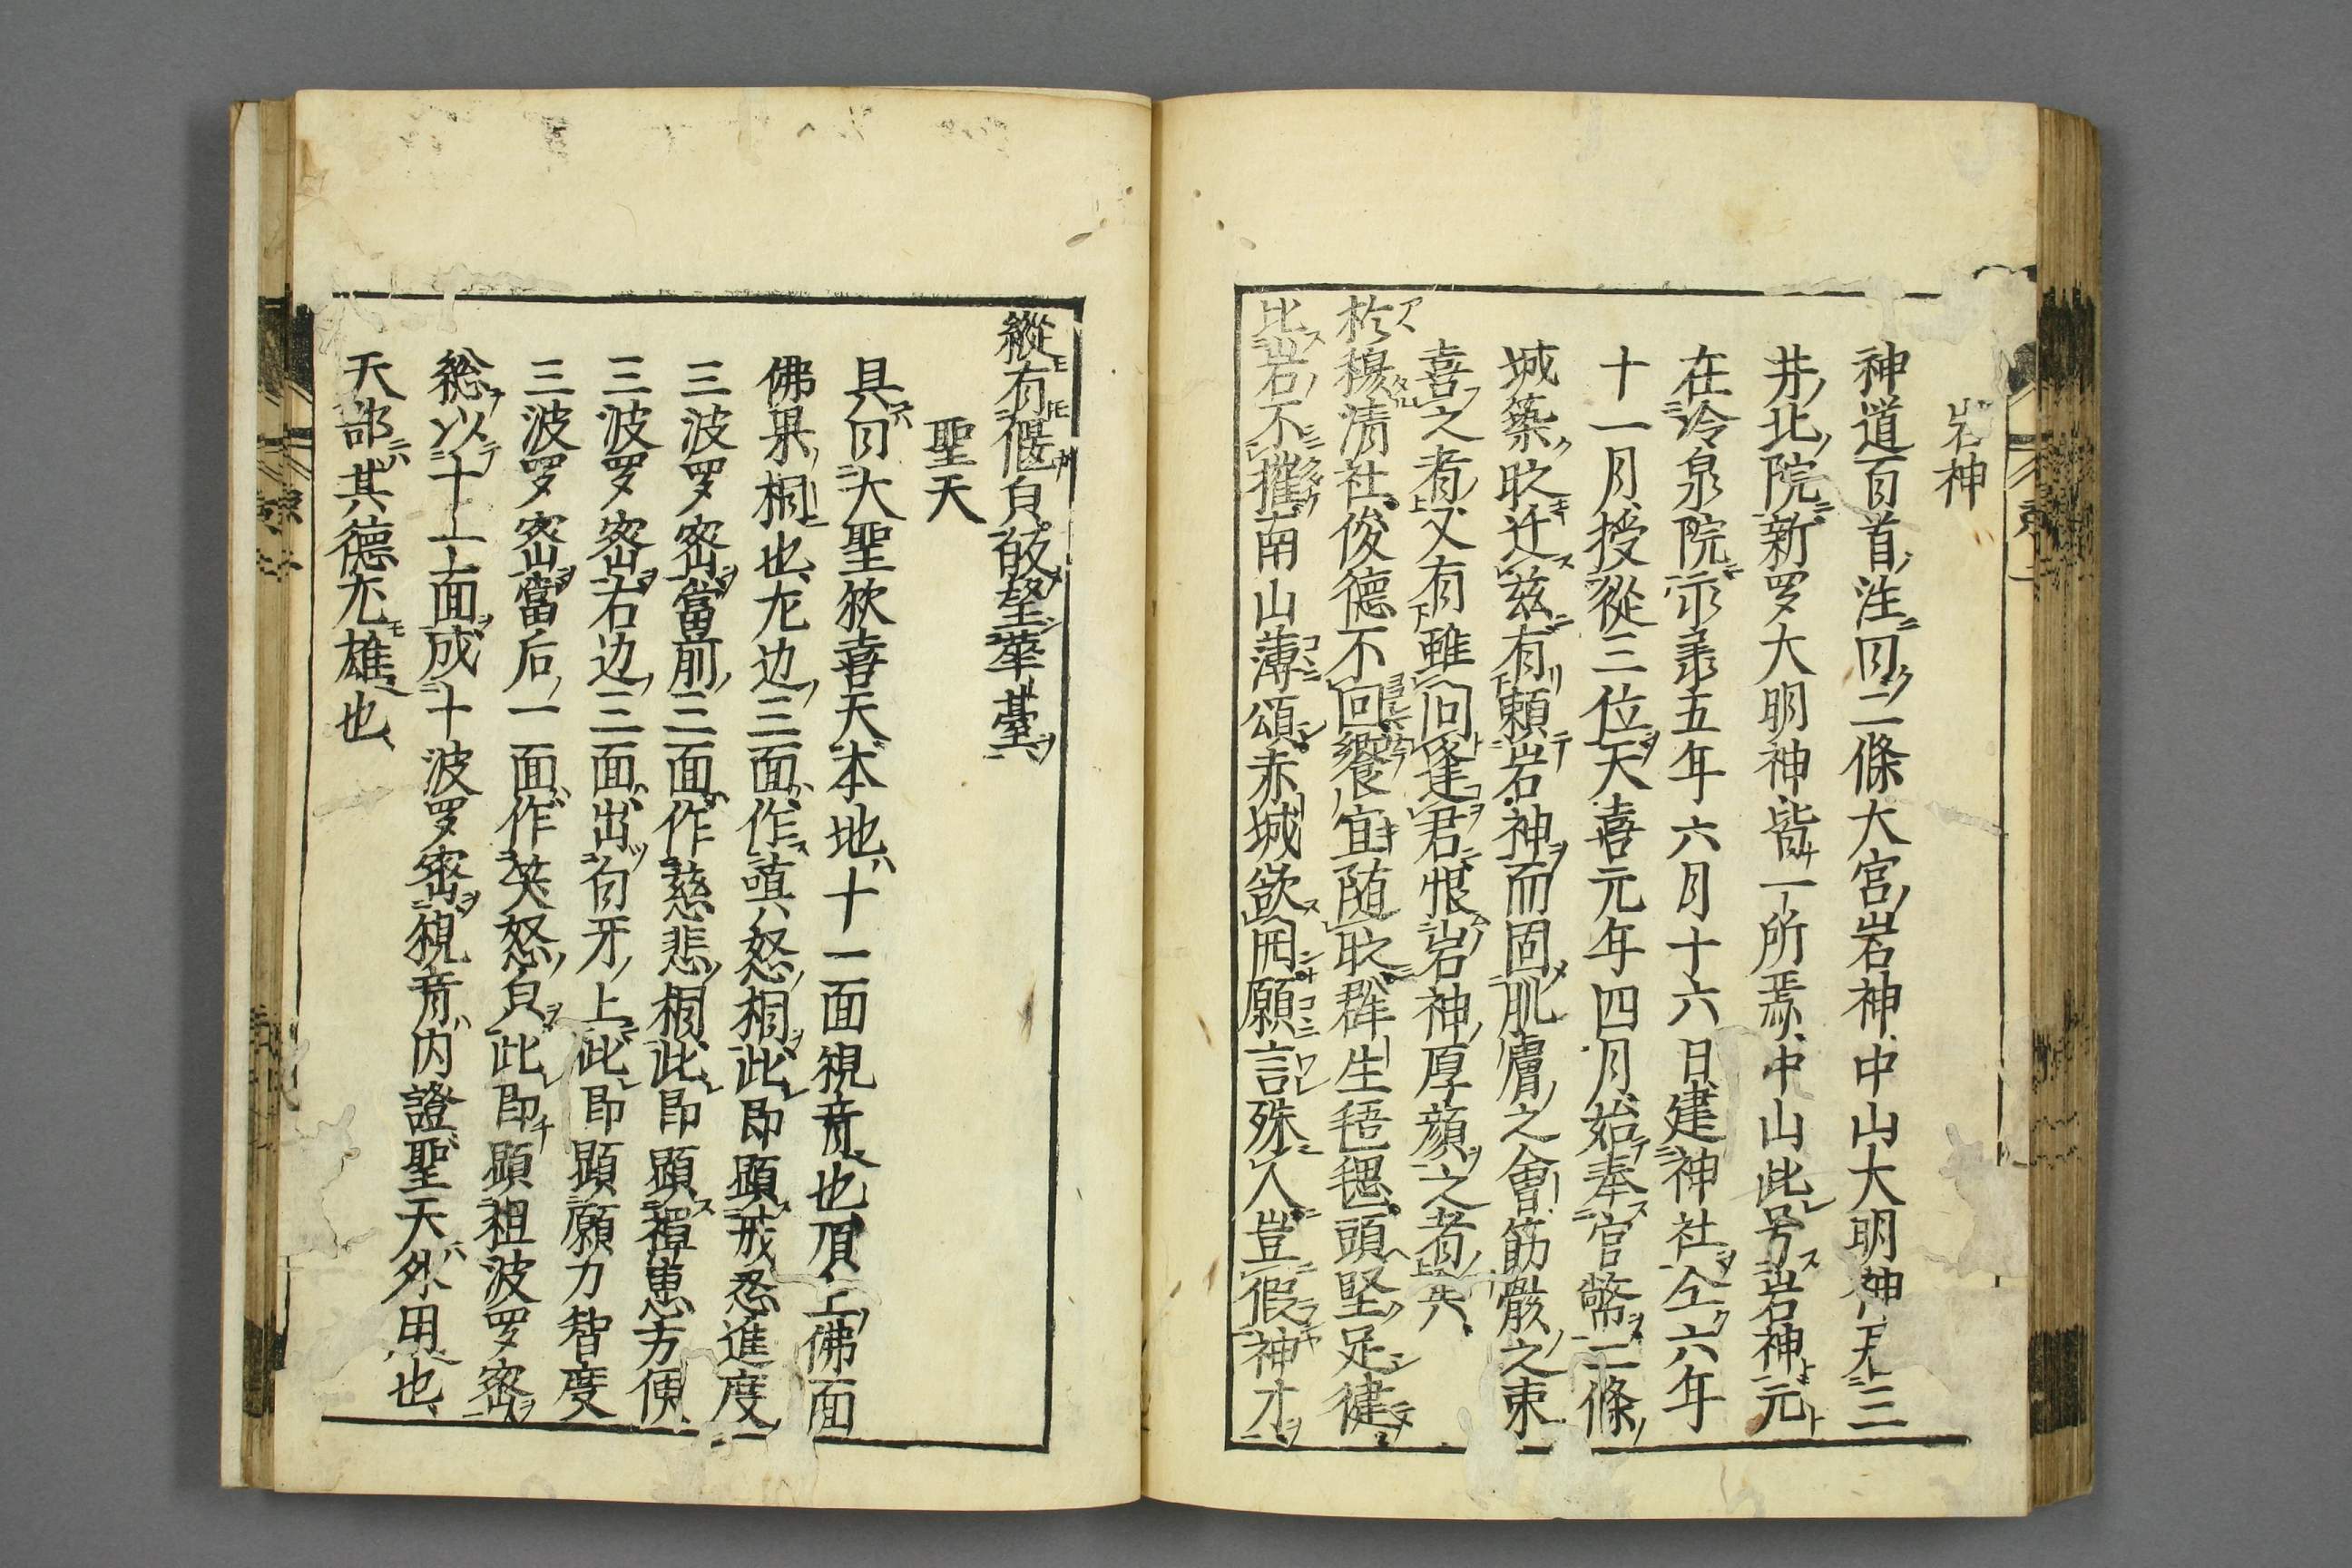 岩神
神道百首注曰二條大宮岩神中山大明神元三
井北院新罗大明神皆一所焉中山此号岩神元
在冷泉院永承五年六月十六日建神社仝六年
十一月授從三位天喜元年四月始奉官幣二條
城築取迁兹有頼岩神而固肌膚之會筋骸之束
喜之者又有雖向逢君恨岩神厚顔之者矣
於穆清社俊德不回饗宜随取群生毯毸頭堅足健
比岩不摧南山薄頌赤城欲罔願言殊人豈假神才
縱有偃皃敢望華臺
聖天
具曰大聖歓喜天本地十一面観音也頂上佛面
佛果相也左边三面作嗔怒相此即顕戒忍進度
三波罗密當前三面作慈悲相此即顕禅惠方便
三波罗密右边三面出白牙上此即顕願力智度
三波罗密當后一面作笑怒皃此即顕祖波罗密
総以十上面成十波罗密観音内證聖天外用也
天部其德尤雄也